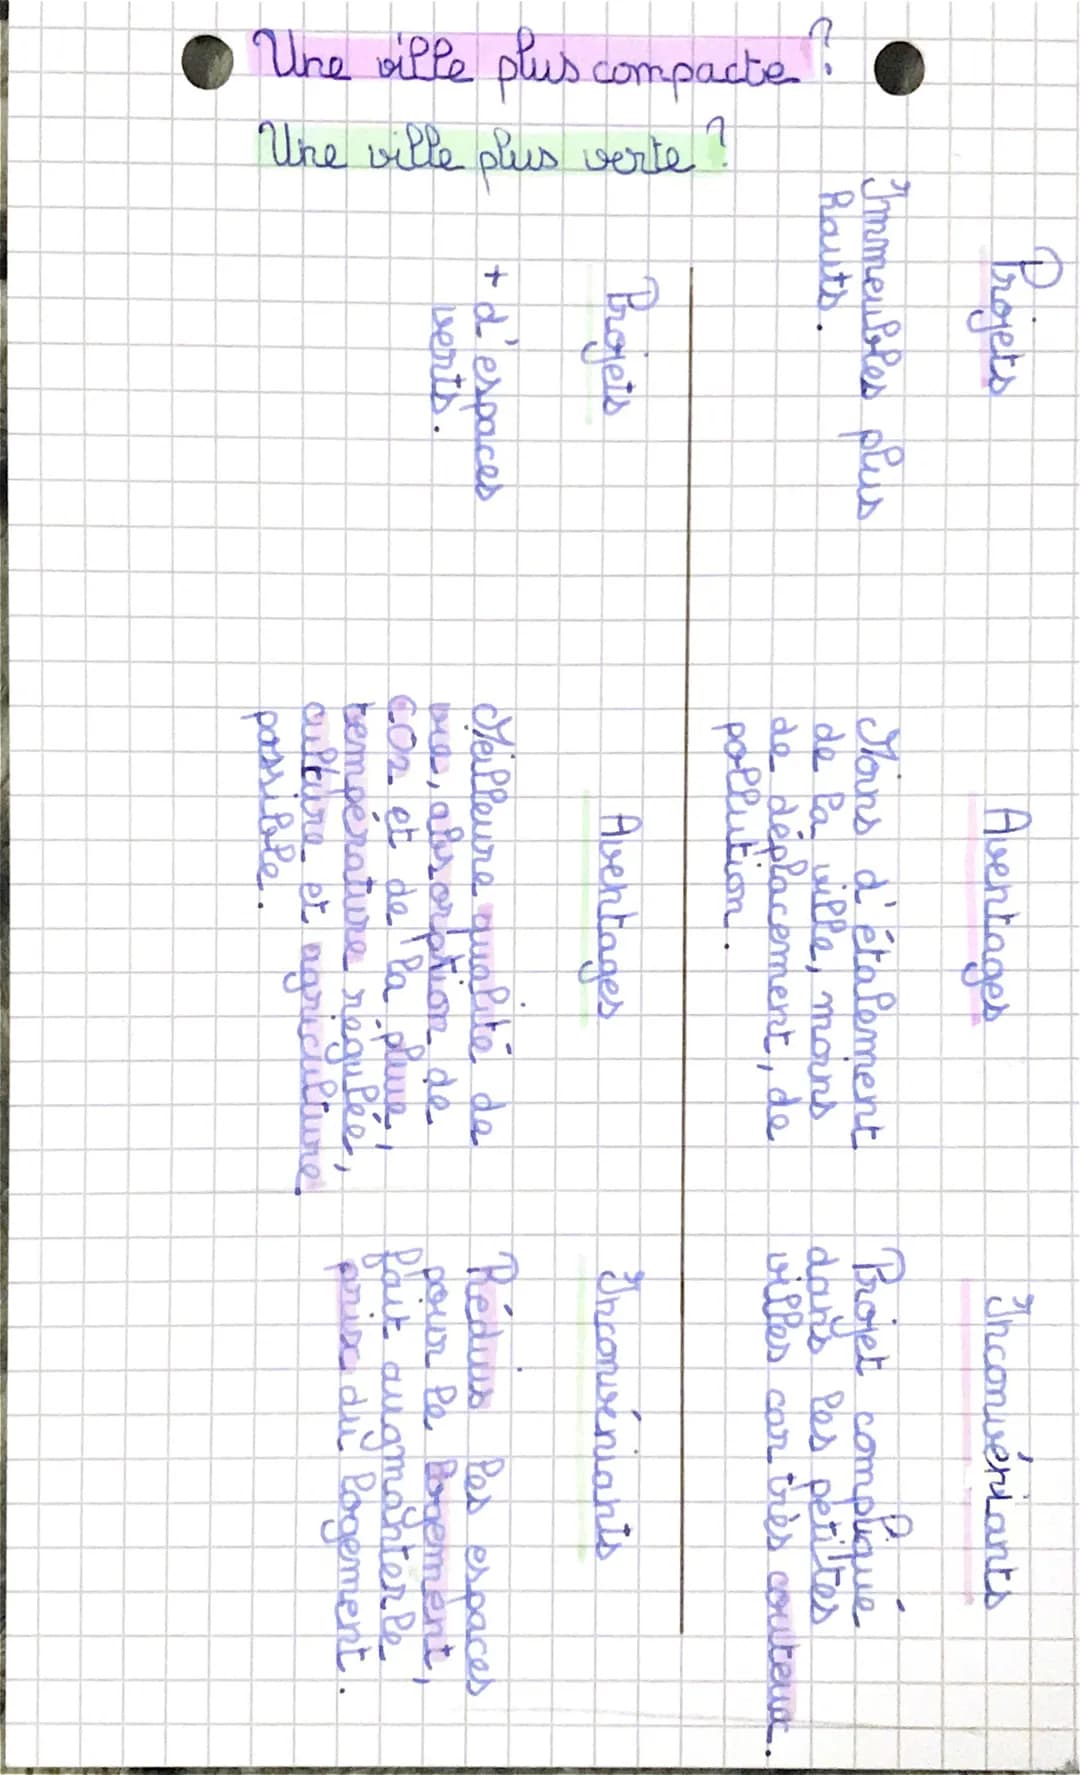 Une ville plus compacte ?
Une ville plus verte ?
Projets
Immeubles plus
hauts.
Aventages
Moins d'étalement
de la ville, moins
de déplacement, de
pollution.
Inconvéniants
Projet compliqué
dans les petites
villes car très couteux.
Projets
+ d'espaces
verts.
Aventages
Meilleure qualité de
vie, absorption de
CO2 et de la pluie,
température régulée,
culture et agriculture
possible.
Inconvéniants
Réduis les espaces
pour le logement,
fait augmenter le
prix du logement.